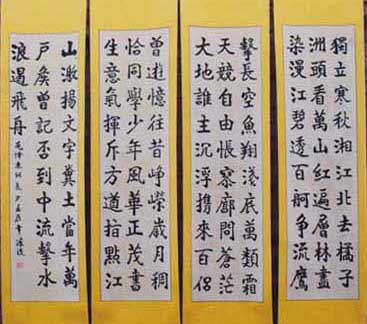 獨立寒秋湘江北去橘子
洲頭看萬山紅遍層林盡
染漫江碧透百舸争流鷹
擊長空魚翔淺底萬類霜
天競自由悵寥廓問蒼茫
大地誰主沉浮携來百侣
曾遊憶往昔崢嶸歲月稠
恰同學少年風華正茂書
生意氣揮斥方遒指點江
山激揚文字糞土當年萬
户矦曾記否到中流擊水
浪遏飛舟